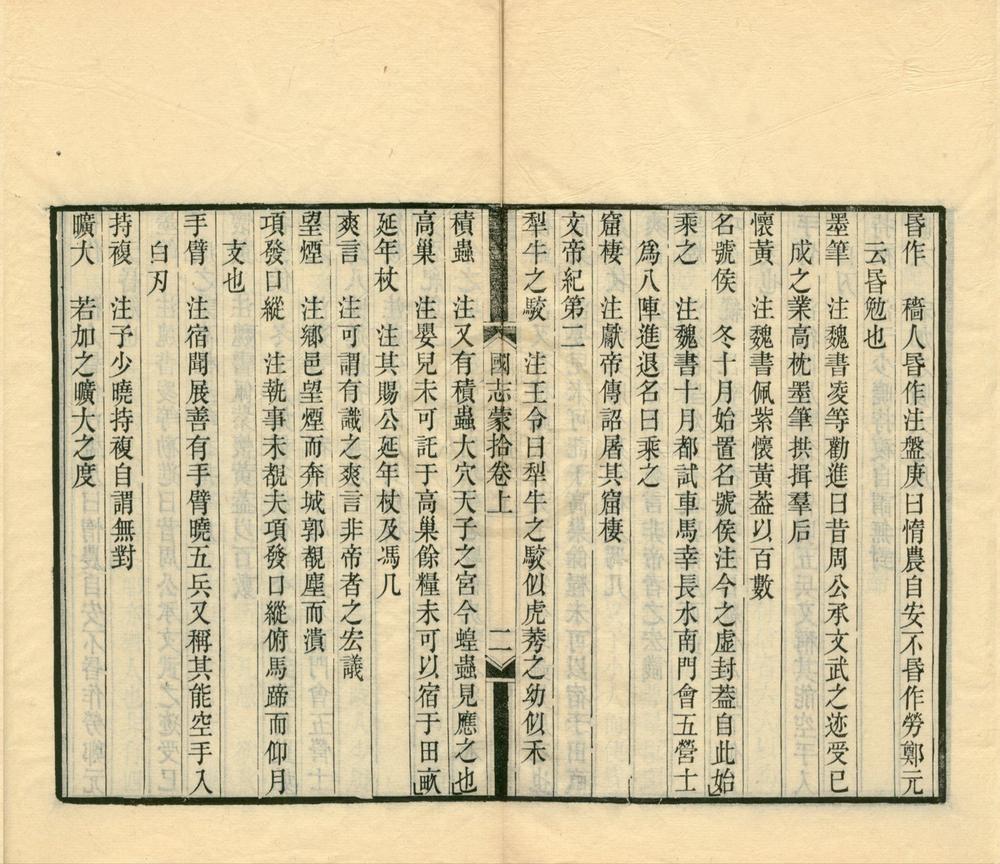 昬作　穡人昬作注盤庚曰惰農自安不昬作勞鄭元
云昬勉也
墨筆　注魏書凌等勸進曰昔周公承文武之迹受已
成之業高枕墨筆拱揖羣后
懷黃　注魏書佩紫懷黃葢以百數
名號侯　冬十月始置名號侯注今之虛封葢自此始
乘之　注魏書十月都試車馬幸長水南門會五營士
爲八陣進退名曰乘之
窟棲　注獻帝傳詔居其窟棲
文帝紀第二
犁牛之駮　注王令曰犁牛之駮似虎莠之幼似禾
國志蒙拾卷上　二
積蟲　注又有積蟲大穴天子之宮今蝗蟲見應之也
高巢　注嬰兒未可託于高巢餘糧未可以宿于田畝
延年杖　注其賜公延年杖及馮几
爽言　注可謂有識之爽言非帝者之宏議
望煙　注鄉邑望煙而奔城郭覩塵而潰
項發口縱　注執事未覩夫項發口縱俯馬蹄而仰月
支也
手臂　注宿聞展善有手臂曉五兵又稱其能空手入
白刃
持複　注予少曉持複自謂無對
曠大　若加之曠大之度